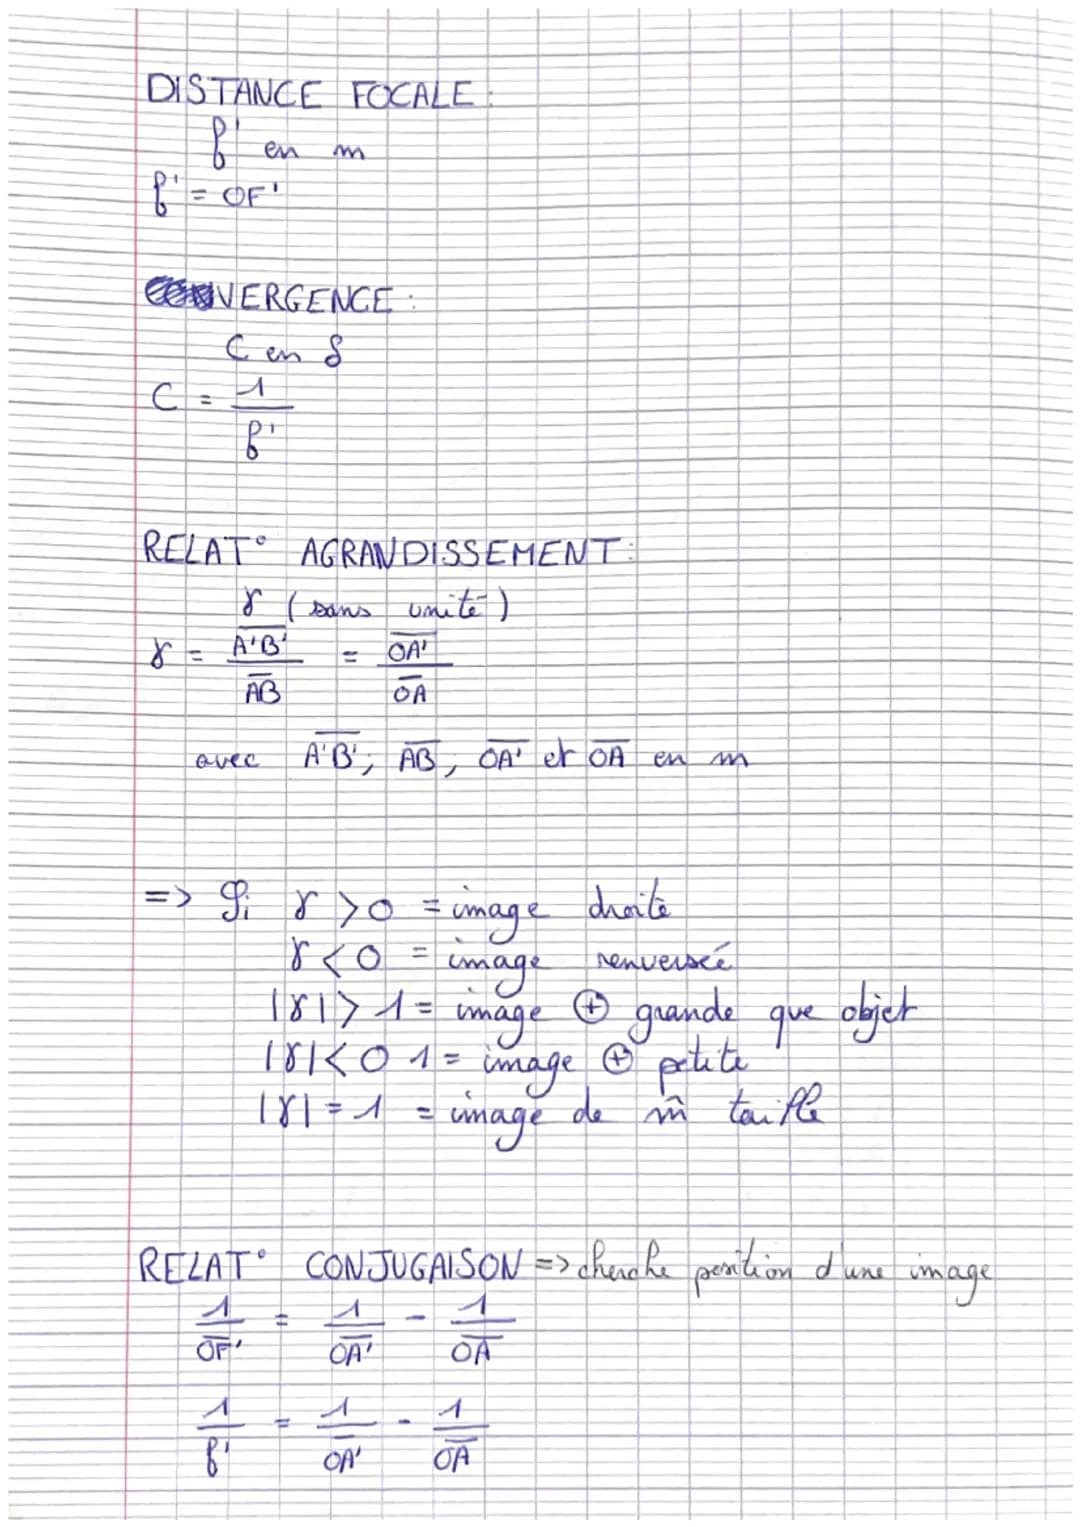 DISTANCE FOCALE :
f' en m
f' = OF'
CONVERGENCE :
C en δ
C = 1
f'
RELAT° AGRANDISSEMENT :
γ (sans unité)
γ = A'B' = OA'
AB OA
avec A'B' ; AB, OA' et OA en m
=> Si γ > 0 = image droite
γ < 0 = image renversée
|γ| > 1 = image ⊕ grande que objet
|γ| < 0 1 = image ⊕ petite
|γ| = 1 = image de m̂ taille
RELAT° CONJUGAISON => cherche position d'une image
1 = 1 - 1
OF' OA' OA
1 = 1 - 1
f' OA' OA